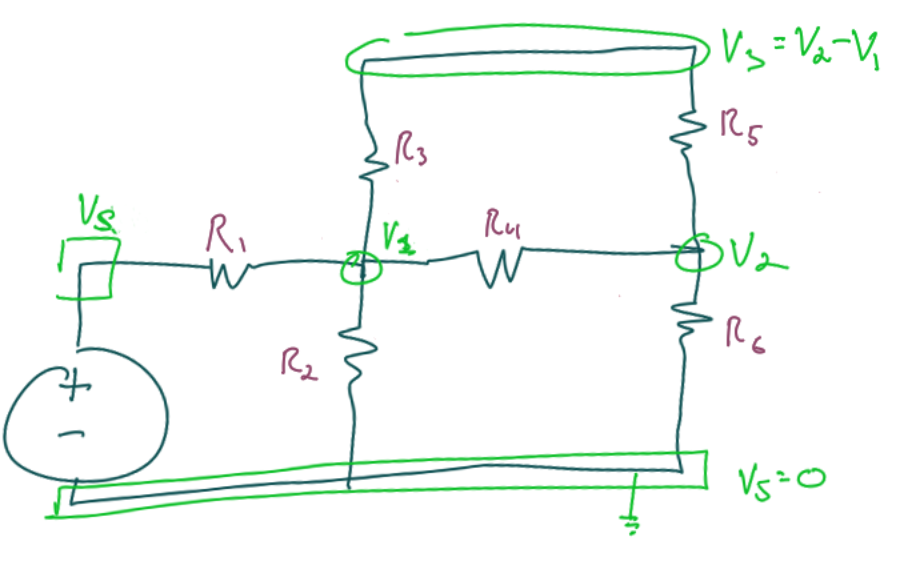 V3 = V2 - V1
R5
R3
VS
R1
V1
R4
V2
R2
R6
+
-
V5 = 0